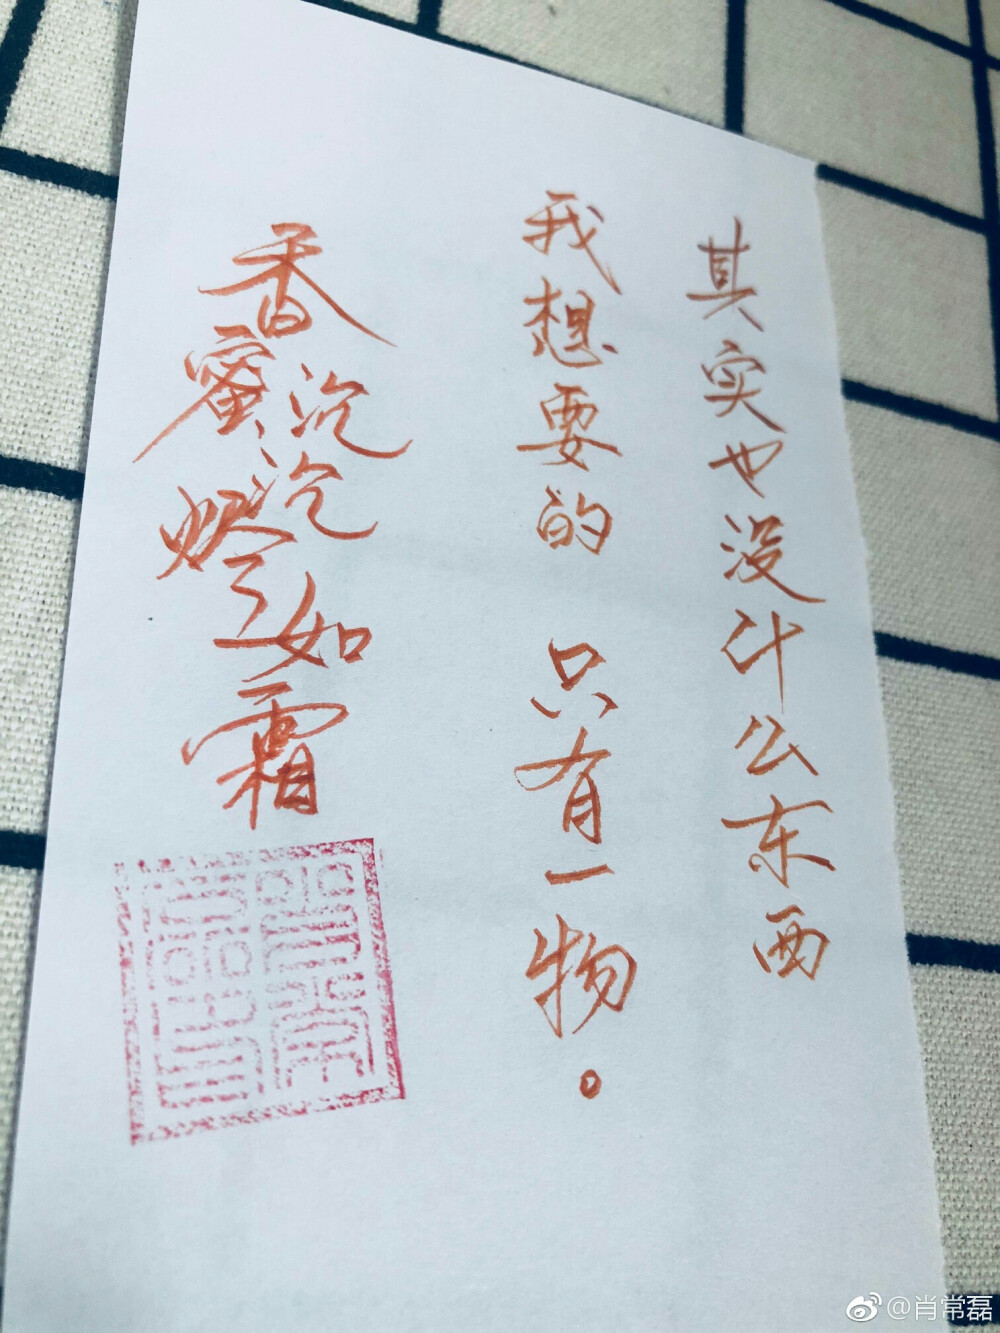 其实也没什么东西
我想要的 只有一物。
香蜜沉沉烬如霜
@肖常磊